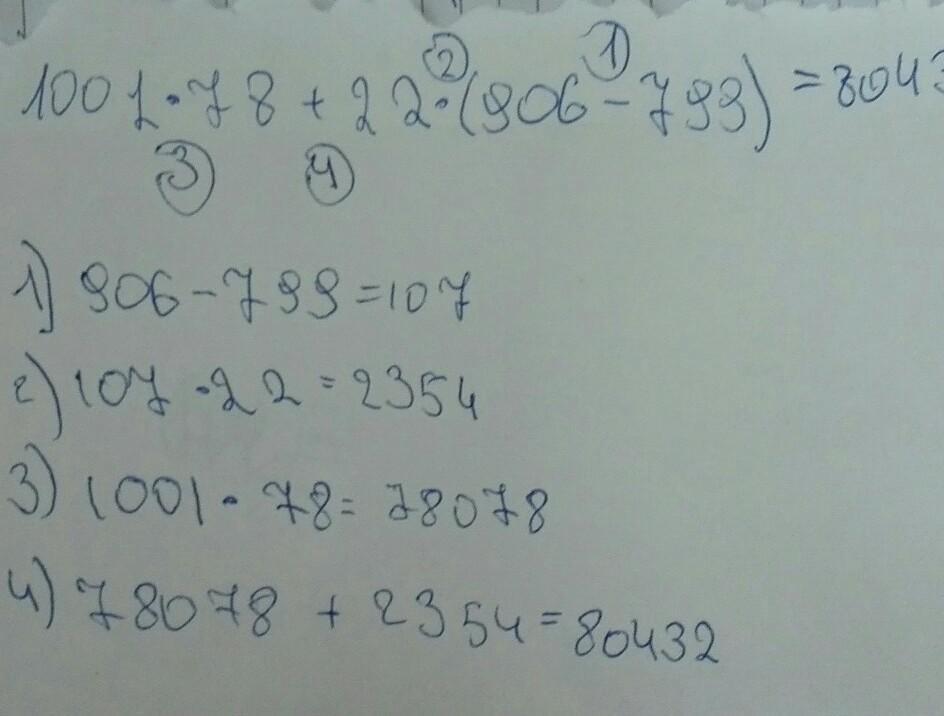 ② ①
1001·78 + 22·(906-799) = 8043
③ ④
1) 906-799=107
2) 107·22=2354
3) 1001·78=78078
4) 78078 + 2354=80432